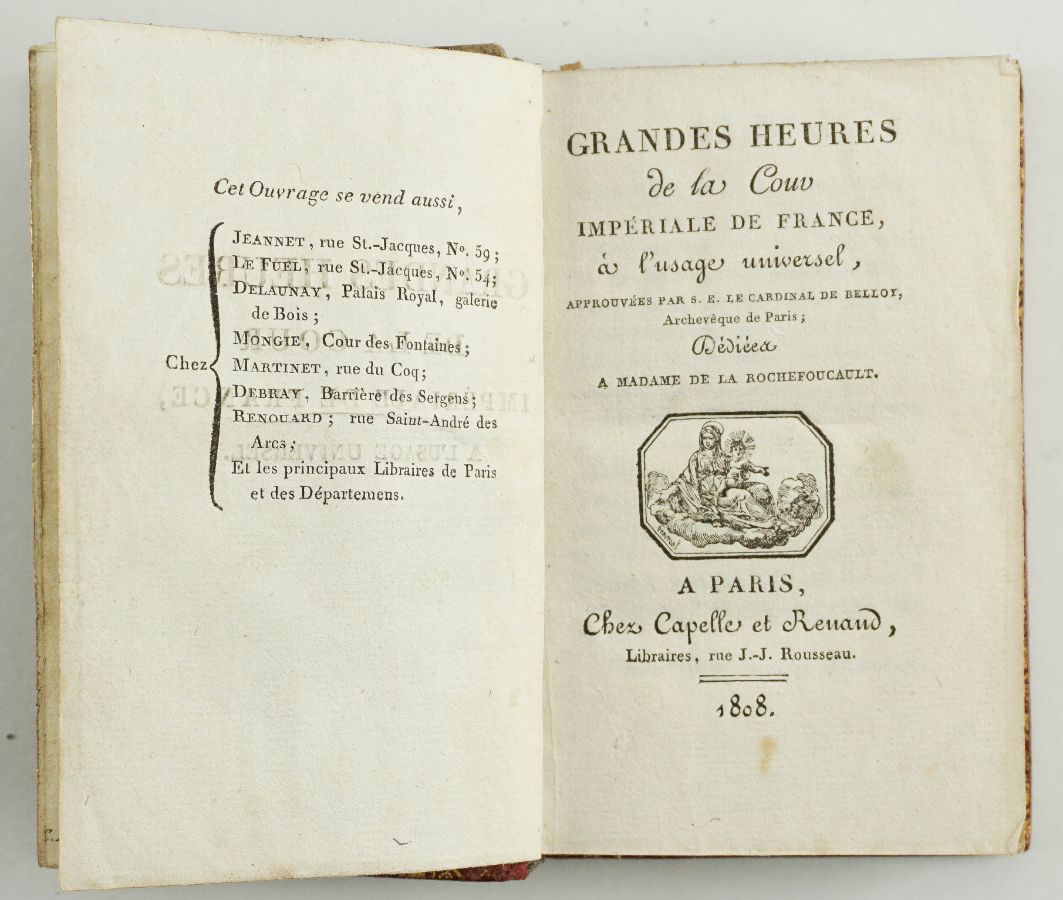 Cet Ouvrage se vend aussi,
JEANNET, rue St.-Jacques, No. 59;
LE FUEL, rue St.-Jacques, No. 54;
DELAUNAY, Palais Royal, galerie
de Bois;
MONGIE, Cour des Fontaines;
Chez
MARTINET, rue du Coq;
DEBRAY, Barrière des Sergens;
RENOUARD; rue Saint-André des
Arcs;
Et les principaux Libraires de Paris
et des Départemens.
GRANDES HEURES
de la Cour
IMPÉRIALE DE FRANCE,
à l'usage universel,
APPROUVÉES PAR S. E. LE CARDINAL DE BELLOY,
Archevêque de Paris;
Dédiées
A MADAME DE LA ROCHEFOUCAULT.
A PARIS,
Chez Capelle et Renand,
Libraires, rue J.-J. Rousseau.
1808.